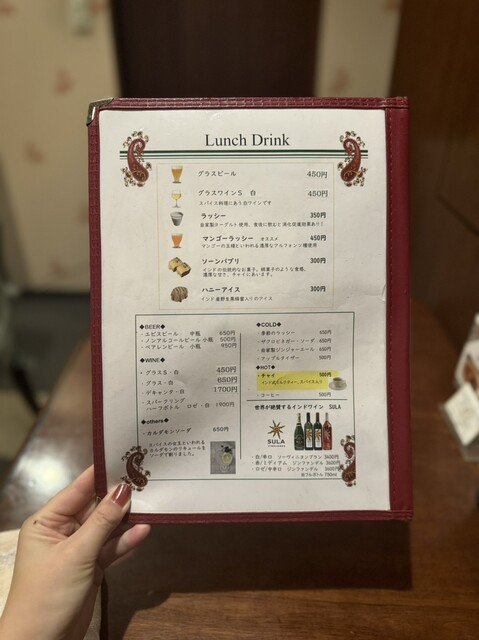 Lunch Drink
グラスビール 450円
グラスワインS 白 450円
スパイス料理にあう白ワインです
ラッシー 350円
自家製ヨーグルト使用、食後に飲むと消化促進効果あり!
マンゴーラッシー オススメ 450円
マンゴーの王様といわれる濃厚なアルフォンソ種使用
ソーンパプリ 300円
インドの伝統的なお菓子。綿菓子のような食感、
濃厚な甘さ、チャイにあいます。
ハニーアイス 300円
インド産野生黒蜂蜜入りのアイス
◆BEER◆
・エビスビール 中瓶 650円
・ノンアルコールビール 小瓶 500円
・ベアレンビール 小瓶 950円
◆WINE◆
・グラスS・白 450円
・グラス・白 650円
・デキャンタ・白 1700円
・スパークリング
ハーフボトル ロゼ・白 1900円
◆others◆
・カルダモンソーダ 650円
スパイスの女王といわれる
カルダモンのリキュールを
ソーダで割りました。
◆COLD◆
・季節のラッシー
・ザクロビネガー・ソーダ 450円
・自家製ジンジャーエール 650円
・アップルタイザー 500円
◆HOT◆
・チャイ 500円
インド式ミルクティー、スパイス入り
・コーヒー 500円
世界が絶賛するインドワイン SULA
SULA
VINEYARDS
・白/辛口 ソーヴィニヨンブラン 3600円
・赤/ミディアム ジンファンデル 3600円
・ロゼ/中辛口 ジンファンデル 3600円
※フルボトル 750ml